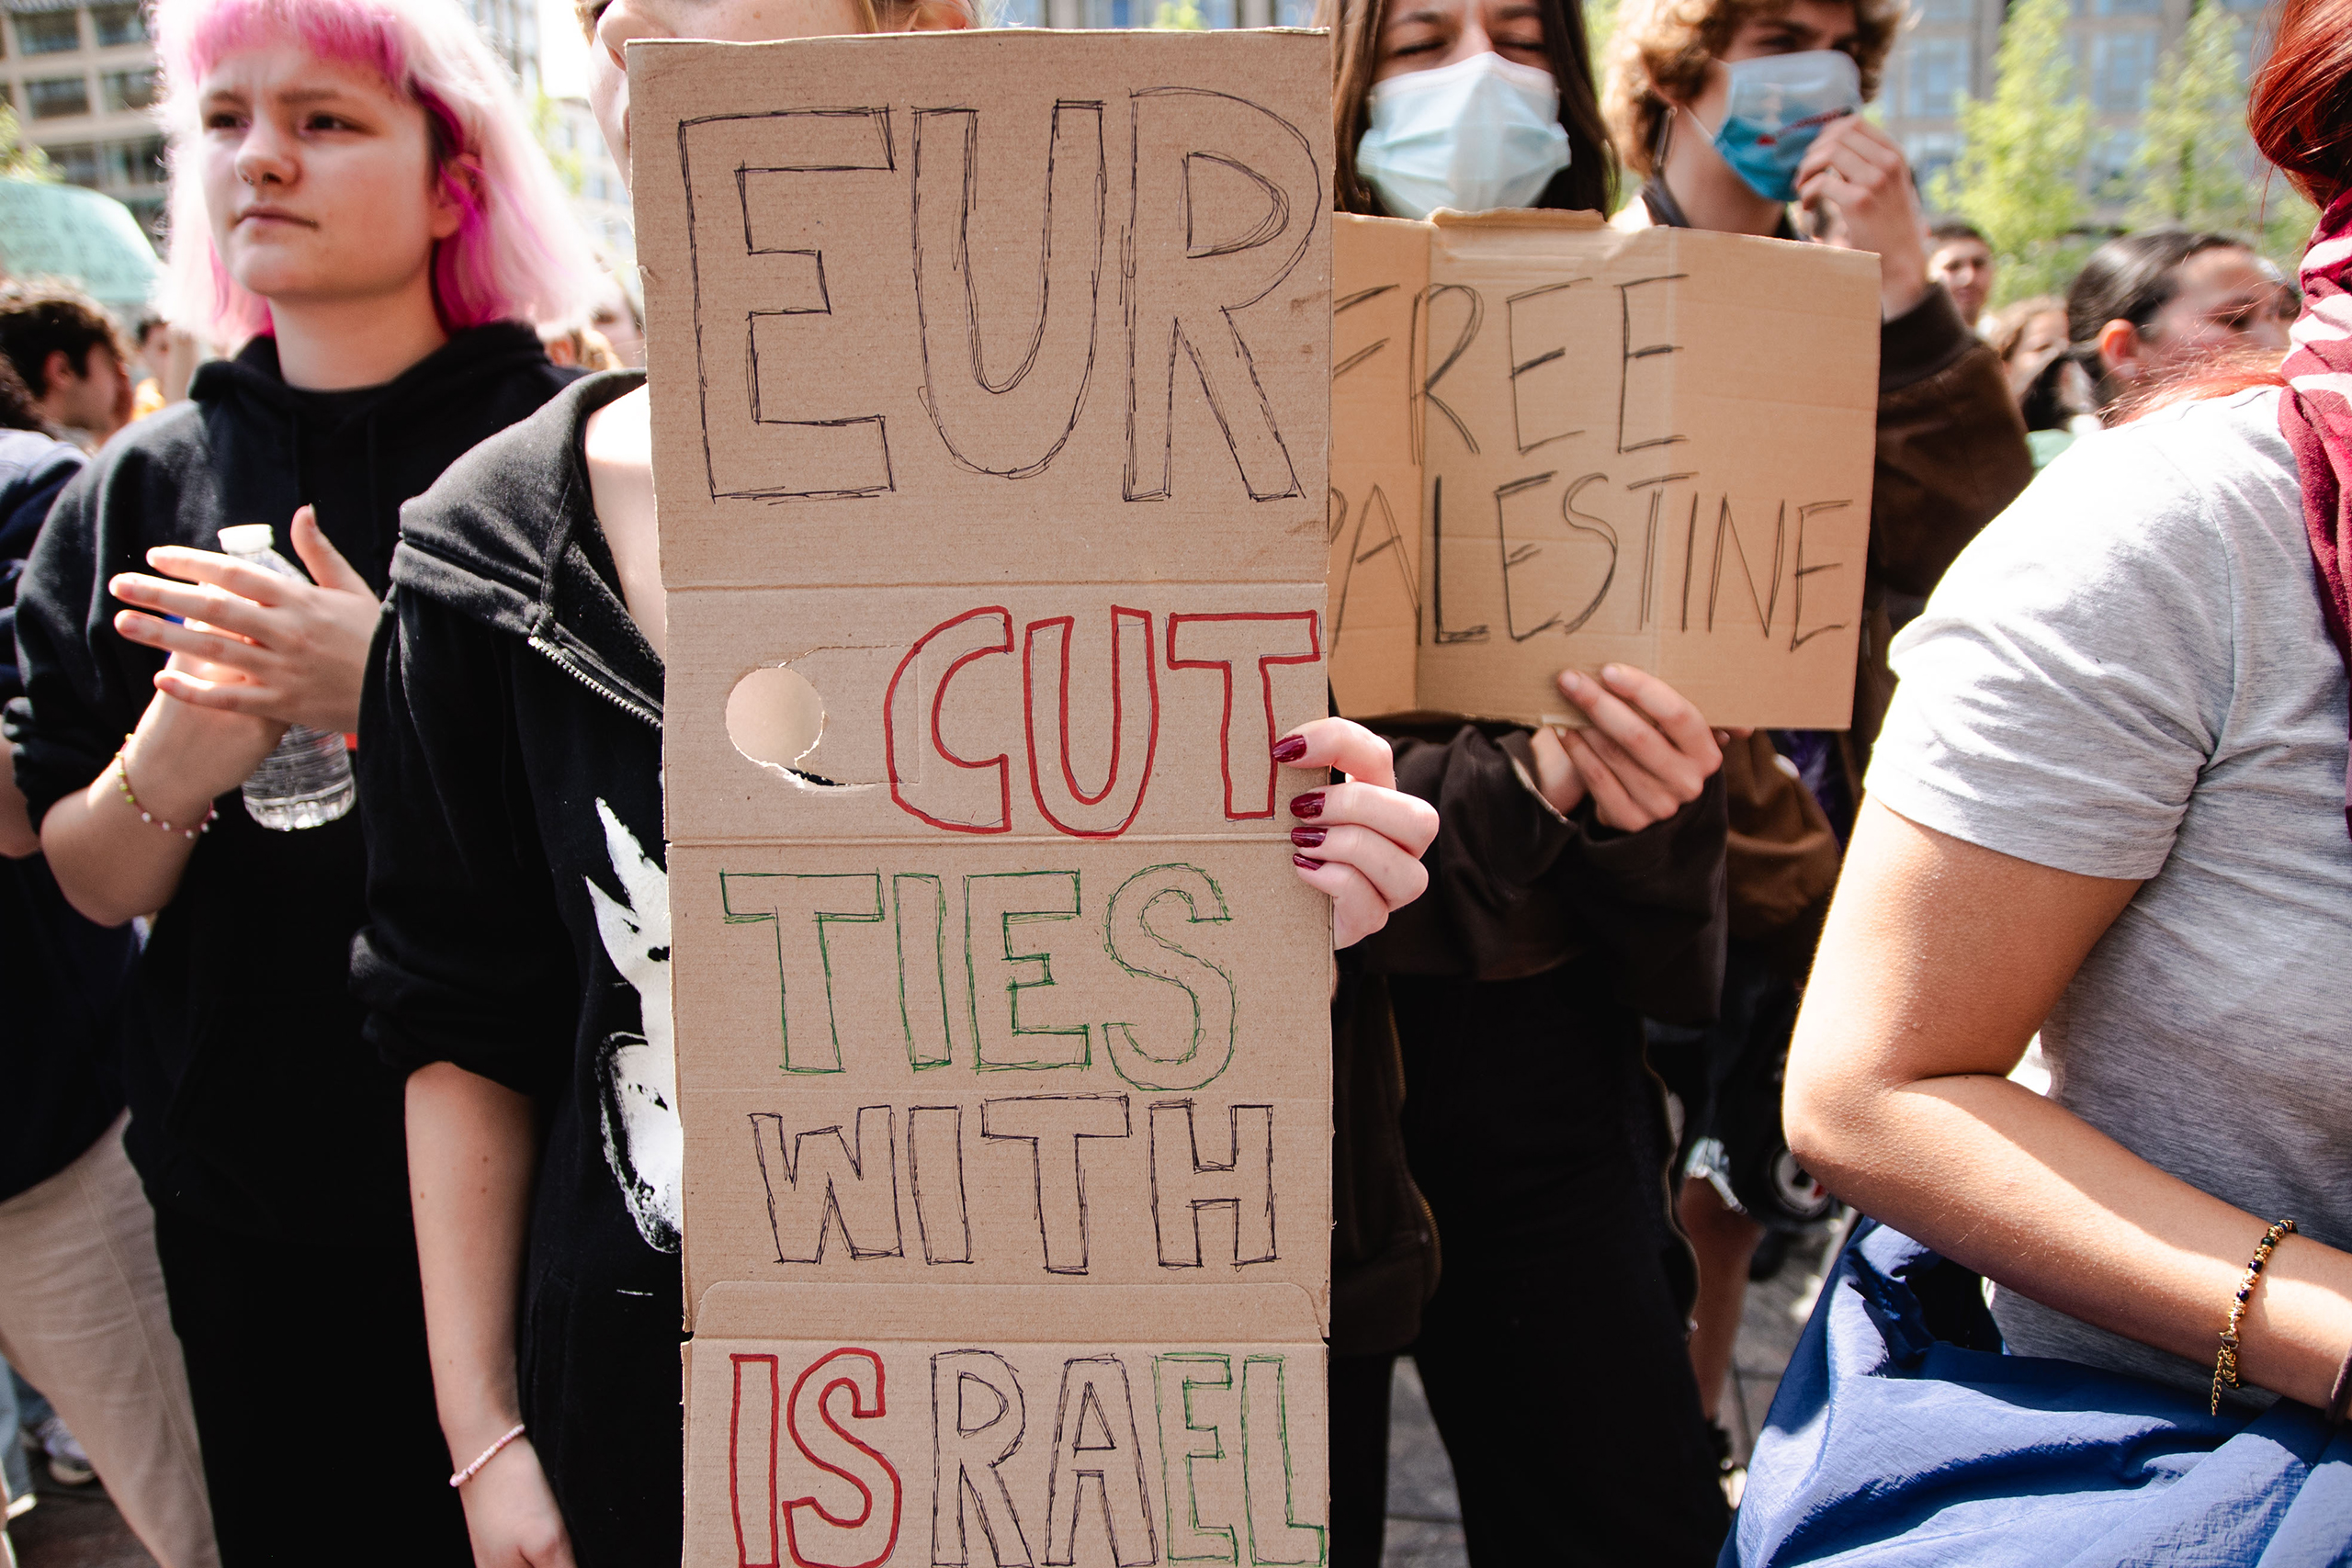 EUR
CUT
TIES
WITH
ISRAEL
FREE
PALESTINE